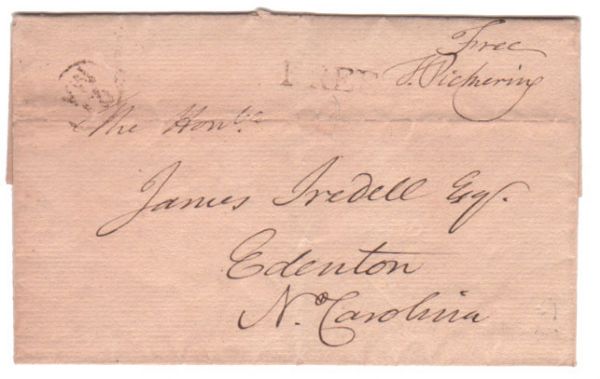 Free
FREE
T. Pickering
The Honble
James Iredell Esqr.
Edenton
No. Carolina